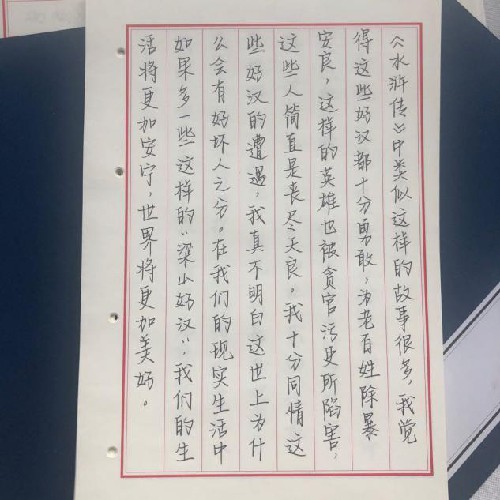 《水浒传》中类似这样的故事很多，我觉
得这些好汉都十分勇敢，为老百姓除暴
安良，这样的英雄也被贪官污吏所陷害，
这些人简直是丧尽天良。我十分同情这
些好汉的遭遇，我真不明白这世上为什
么会有好坏人之分。在我们的现实生活中
如果多一些这样的“梁山好汉”，我们的生
活将更加安宁，世界将更加美好。